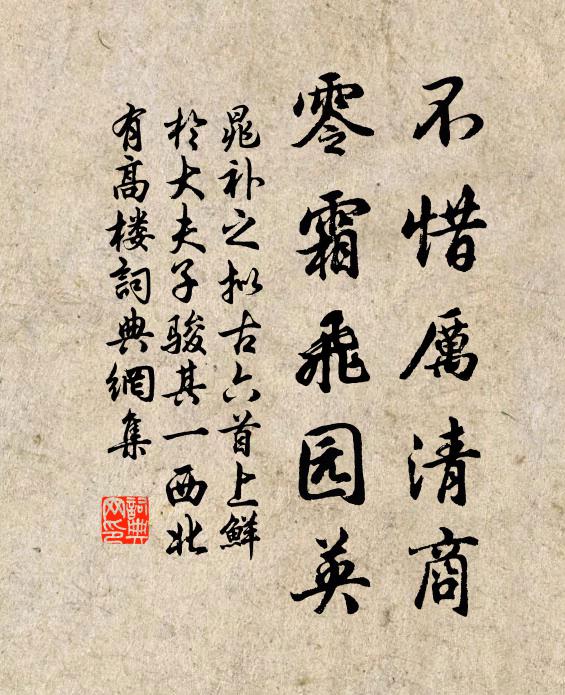 不惜厲清商
零霜飛园英
晁补之拟古六首上鮮
於大夫子骏其一西北
有高楼詞典網集
詞典
网印